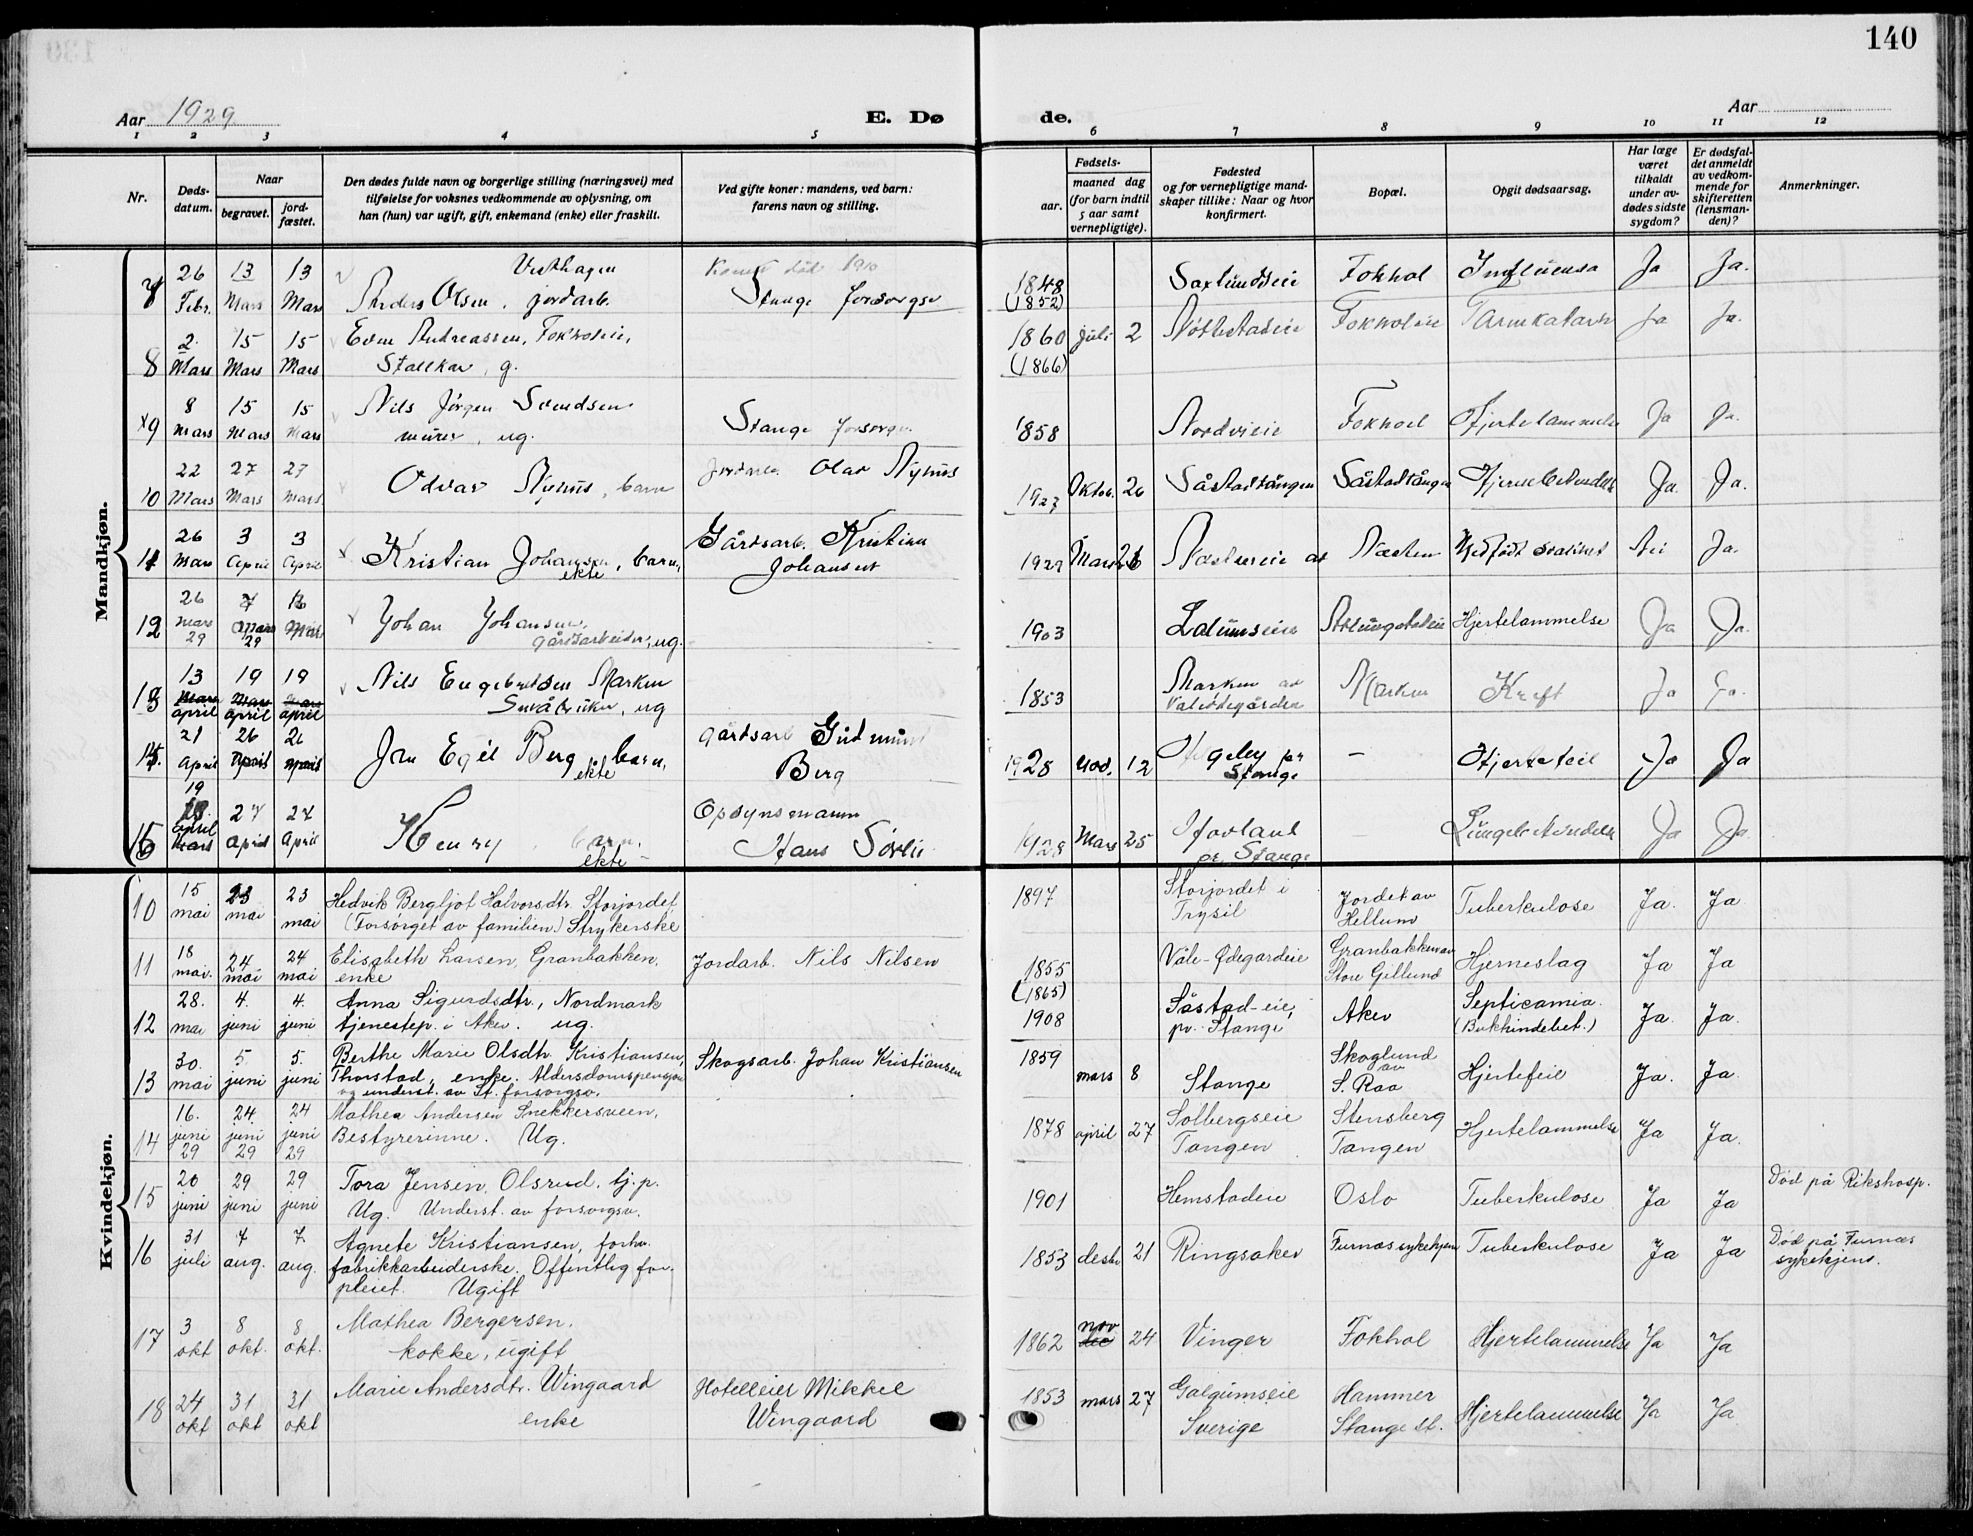 140
Aar 1929
E. Dø
de.
Aar
1 2 3 4 5 6 7 8 9 10 11 12
Nr.
Døds-
datum.
Naar
begravet.
jord-
fæstet.
Den dødes fulde navn og borgerlige stilling (næringsvei) med
tilføielse for voksnes vedkommende av oplysning, om
han (hun) var ugift, gift, enkemand (enke) eller fraskilt.
Ved gifte koner: mandens, ved barn:
farens navn og stilling.
Fødsels-
aar.
maaned dag
(for barn indtil
5 aar samt
vernepligtige).
Fødested
og for vernepligtige mand-
skaper tillike: Naar og hvor
konfirmert.
Bopæl.
Opgit dødsaarsag.
Har læge
været
tilkaldt
under av-
dødes sidste
sygdom?
Er dødsfal-
det anmeldt
av vedkom-
mende for
skifteretten
(lensman-
den)?
Anmerkninger.
Mandkjøn.
26 13 13 Vesthagen Kone død 1910 1848 Saxlundseie Fokhol Influensa Ja Ja.
7 Febr. Mars Mars Anders Olsen, jordarb. Stange forsorgsv (1852)
2. 15 15 Even Andreassen, Fokholeie, 1860 juli 2 Nøttestadeie Fokholeie Tarmkatarrh Ja Ja.
8 Mars Mars Mars Stallkar, g. (1866)
8 15 15 Nils Jörgen Svendsen Stange forsorgsv.
x9 Mars Mars Mars murer, ug. 1858 Nordvieie Fokhol Hjertelammelse Ja Ja.
22 27 27 Jordarb. Olav Nyhus
10 Mars Mars Mars Odvar Nyhus, barn 1923 Oktob. 26 Såstadtången Såstadtången Ja. Ja.
26 3 3 Gårdsarb. Kristian
11 Mars April April Kristian Johansen, barn, Johansen 1929 Mars 26 Næsteneie av Næsten Medfødt svakhet Nei Ja.
ekte
26 7 13
12 mars Mars Johan Johansen, 1903 Lalumseie Hjertelammelse Ja Ja.
29 29 gårdsarbeider, ug.
13 19 19 Nils Engebretsen Marken Marken av
13 Mars Mars Mars Småbruker, ug 1853 Våleødegården Marken Kreft Ja Ja.
april april april
21 26 26 gårdsarb Gudmund
April April April Jan Egil Berg, barn, Berg 1928 nov. 12 pr — Hjertefeil Ja Ja
ekte Stange
19
27 27 Opsynsmann
15 April April April Henry, barn, Hans Sørlie 1928 Mars 25 Hovland — Ja Ja
Mars ekte – pr. Stange
Kvindekjøn.
15 23 23 Hedvik Bergljot Halvorsdtr. Storjordet 1897 Storjordet i Jordet av
10 mai mai mai (Forsørget av familien) Strykerske Trysil Hellum Tuberkulose Ja. Ja
18 24 24 Elisabeth Larsen, Granbakken, Jordarb. Nils Nilsen 1855 Våle-Ødegardeie Granbakken av Hjerneslag Ja Ja
11 mai. mai mai enke (1865) Store Gillund
28. 4. 4. Anna Sigurdsdtr., Nordmark Såstad-eie, Septicamia.
12 mai juni juni tjenestep. i Aker. ug. 1908 pr. Stange Aker (Bukhindebet.) Ja. Ja.
30. 5. 5. Berthe Marie Olsdtr. Kristiansen, Skogsarb. Johan Kristiansen 1859 Skoglund
13 mai juni juni Thorstad, enke. Alderdomspensjon mars 8 Stange av Hjertefeil Ja. Ja.
og underst. av St. forsorgsv. S. Raa
16. 24 24 Mathea Andersen Snekkersveen, 1878 april 27 Solbergseie Stensberg Hjertelammelse Ja Ja.
14 juni juni juni Bestyrerinne. Ug. Tangen Tangen
29 29 29
20 29 29 Tora Jensen, Olsrud, tj.p. 1901 Hemstadeie Oslo Tuberkulose Ja Ja Død på Rikshosp.
15 juni juni juni Ug. Underst. av forsorgsv.
31 7 7. Agnete Kristiansen, forhv. Død på Furnes
16 juli aug. aug. fabrikkarbeiderske. Offentlig for- 1853 desbr 21 Ringsaker Furnes sykehjem Tuberkulose Ja Ja sykehjem.
pleiet. Ugift
3 8 8 Mathea Bergersen, nov
17 okt okt. okt. kokke, ugift 1862 dec 24 Vinger Fokhol Hjertelammelse Ja Ja
24 31 31 Marie Andersdtr. Wingaard Hotelleier Mikkel 1853 mars 27 Galgumseie Hammer
18 okt okt okt enke Wingaard Sverige Stange st. Hjertelammelse Ja Ja